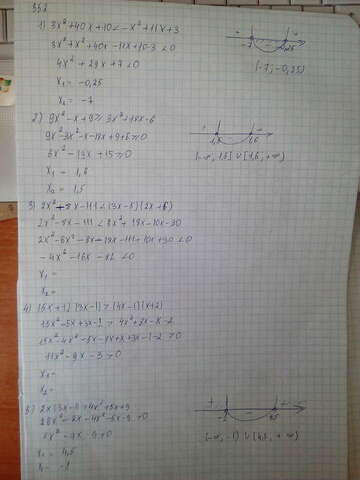 352
1) 3x² + 40x + 10 < -x² + 11x + 3
3x² + x² + 40x - 11x + 10 - 3 < 0
4x² + 29x + 7 < 0
x₁ = -0,25
x₂ = -7
-7 -0,25
(-7; -0,25)
2) 9x² - x + 9 ≥ 3x² + 18x - 6
9x² - 3x² - x - 18x + 9 + 6 ≥ 0
6x² - 19x + 15 ≥ 0
x₁ = 1,6
x₂ = 1,5
+ - +
1,5 1,6
(-∞, 1,5] ∪ [1,6, +∞)
3) 2x² + 8x - 111 < (3x - 5)(2x + 6)
2x² - 8x - 111 < 6x² + 18x - 10x - 30
2x² - 6x² - 8x - 18x - 111 + 10x + 30 < 0
-4x² - 16x - 81 < 0
x₁ =
x₂ =
4) (5x + 1)(3x - 1) > (4x - 1)(x + 2)
15x² - 5x + 3x - 1 > 4x² + 8x - x - 2
11x² - 9x - 3 > 0
x₁ =
x₂ =
5) 2x(3x - 1) > 4x² + 5x + 9
2x² - 7x - 9 > 0
x₁ = 4,5
x₂ = -1
+ - +
-1 4,5
(-∞, -1) ∪ (4,5, +∞)